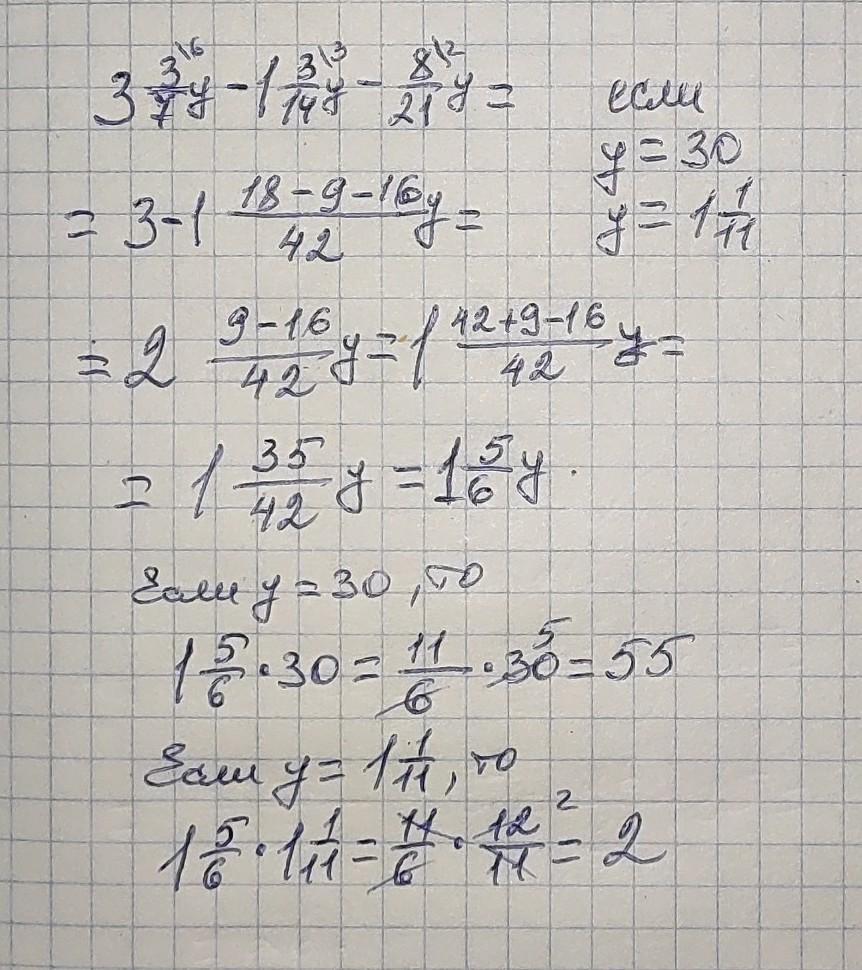 3 3\6/7 y - 1 3\3/14 y - 8\2/21 y = если
y = 30
= 3-1 18-9-16/42 y = y = 1 1/11
= 2 9-16/42 y = 1 42+9-16/42 y =
= 1 35/42 y = 1 5/6 y .
Если y = 30, то
1 5/6 · 30 = 11/6 · 30 5 = 55
Если y = 1 1/11, то
1 5/6 · 1 1/11 = 11/6 · 12 2/11 = 2